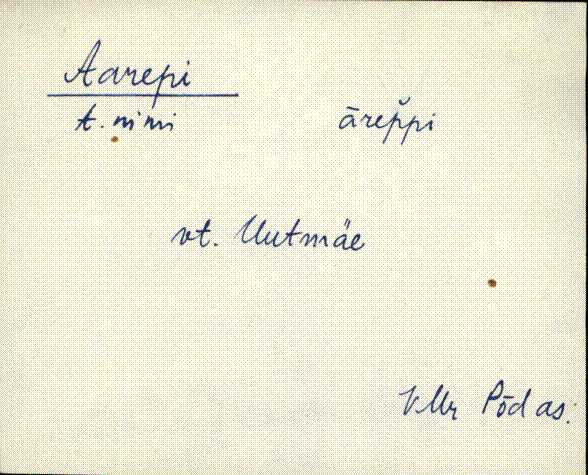 Aarepi
t. nimi ārep̌pi
vt. Uutmäe
VMr Põd as.